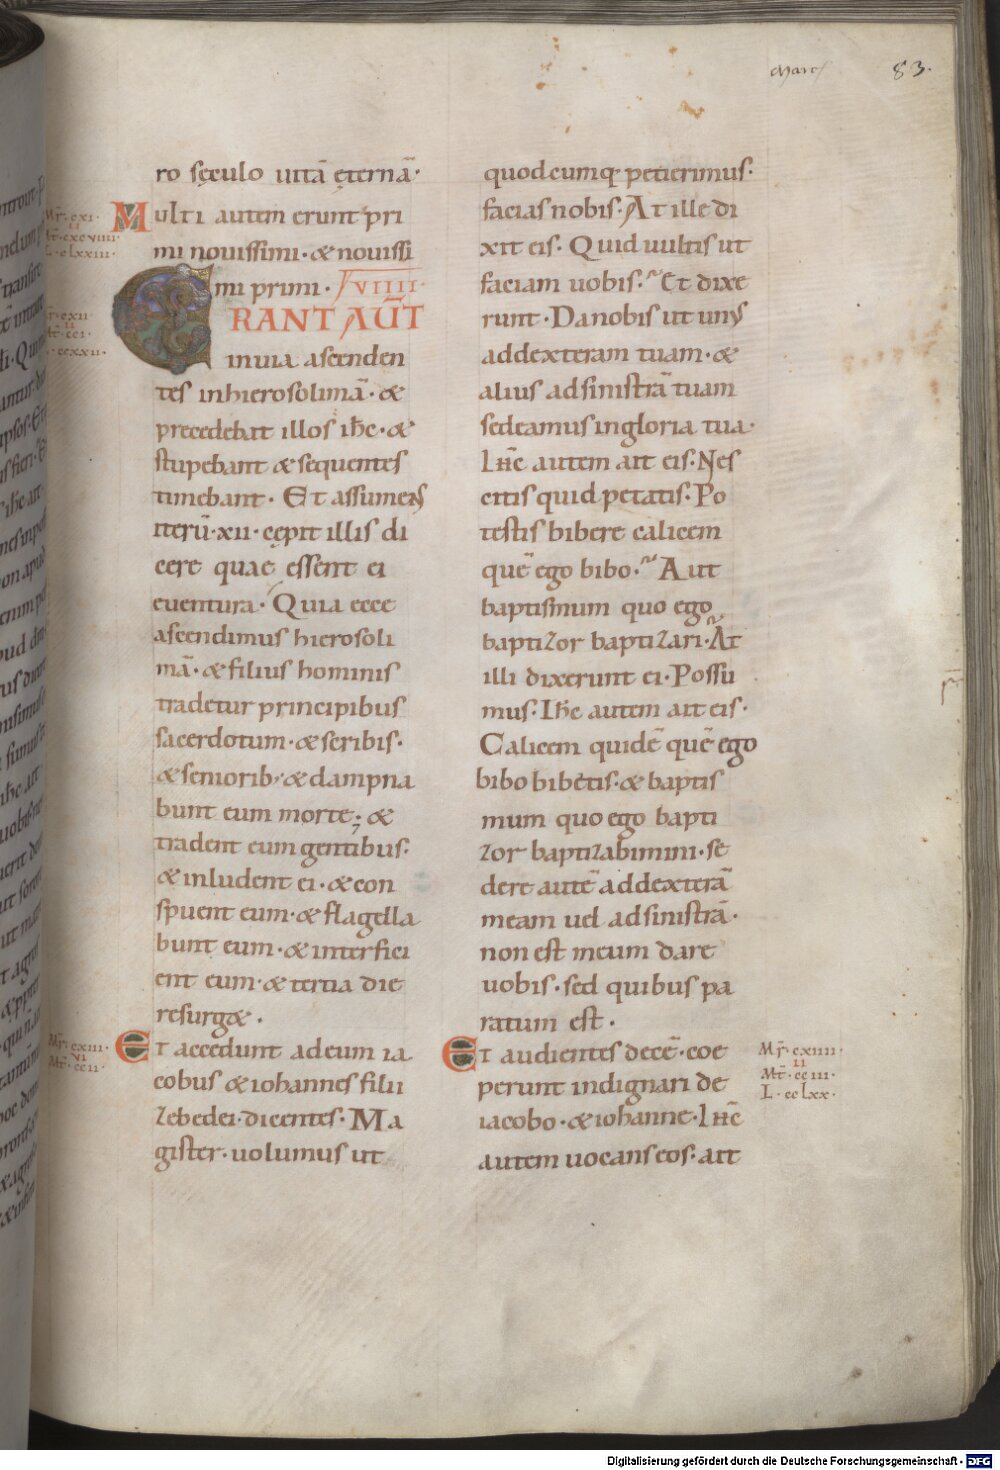 Marc 83.
ro sęculo uitā ęternā·
Multi autem erunt pri
mi nouissimi· & nouissi
mi primi· VIIII·
ERANT AUT̄
inuia ascenden
tes inhierosolimā· &
precedebat illos ih̄c· &
stupebant & sequentes
timebant· Et assumens
iterū·xii· cępit illis di
cere quae essent ei
euentura· Quia ecce
ascendimus hierosoli
mā· & filius hominis
tradetur principibus
sacerdotum· & scribis·
& seniorib; & dampna
bunt eum morte; &
tradent eum gentibus·
& inludent ei· & con
spuent eum· & flagella
bunt eum· & interfici
ent eum· & tertia die
resurg&·
Et accedunt ad eum ia
cobus & iohannes filii
zebedei· dicentes· Ma
gister· uolumus ut
quodcumq; petierimus·
facias nobis· At ille di
xit eis· Quid uultis ut
faciam uobis· Et dixe
runt· Da nobis ut unus
addexteram tuam· &
alius adsinistrā tuam
sedeamus ingloria tua·
Ihc̄ autem ait eis· Nes
citis quid petatis· Po
testis bibere calicem
quē ego bibo· Aut
baptismum quo ego
baptizor baptizari· At
illi dixerunt ei· Possu
mus· Ih̄c autem ait eis·
Calicem quidē quē ego
bibo bibetis· & baptis
mum quo ego bapti
zor baptizabimini· se
dere autē addexterā
meam uel adsinistrā·
non est meum dare
uobis· sed quibus pa
ratum est·
Et audientes decē· coe
perunt indignari de
iacobo· & iohanne· Ihc̄
autem uocans eos· ait
Mr̄· cxiiii·
II
Mt̄· cciii·
L· cclxx·
Digitalisierung gefördert durch die Deutsche Forschungsgemeinschaft · DFG